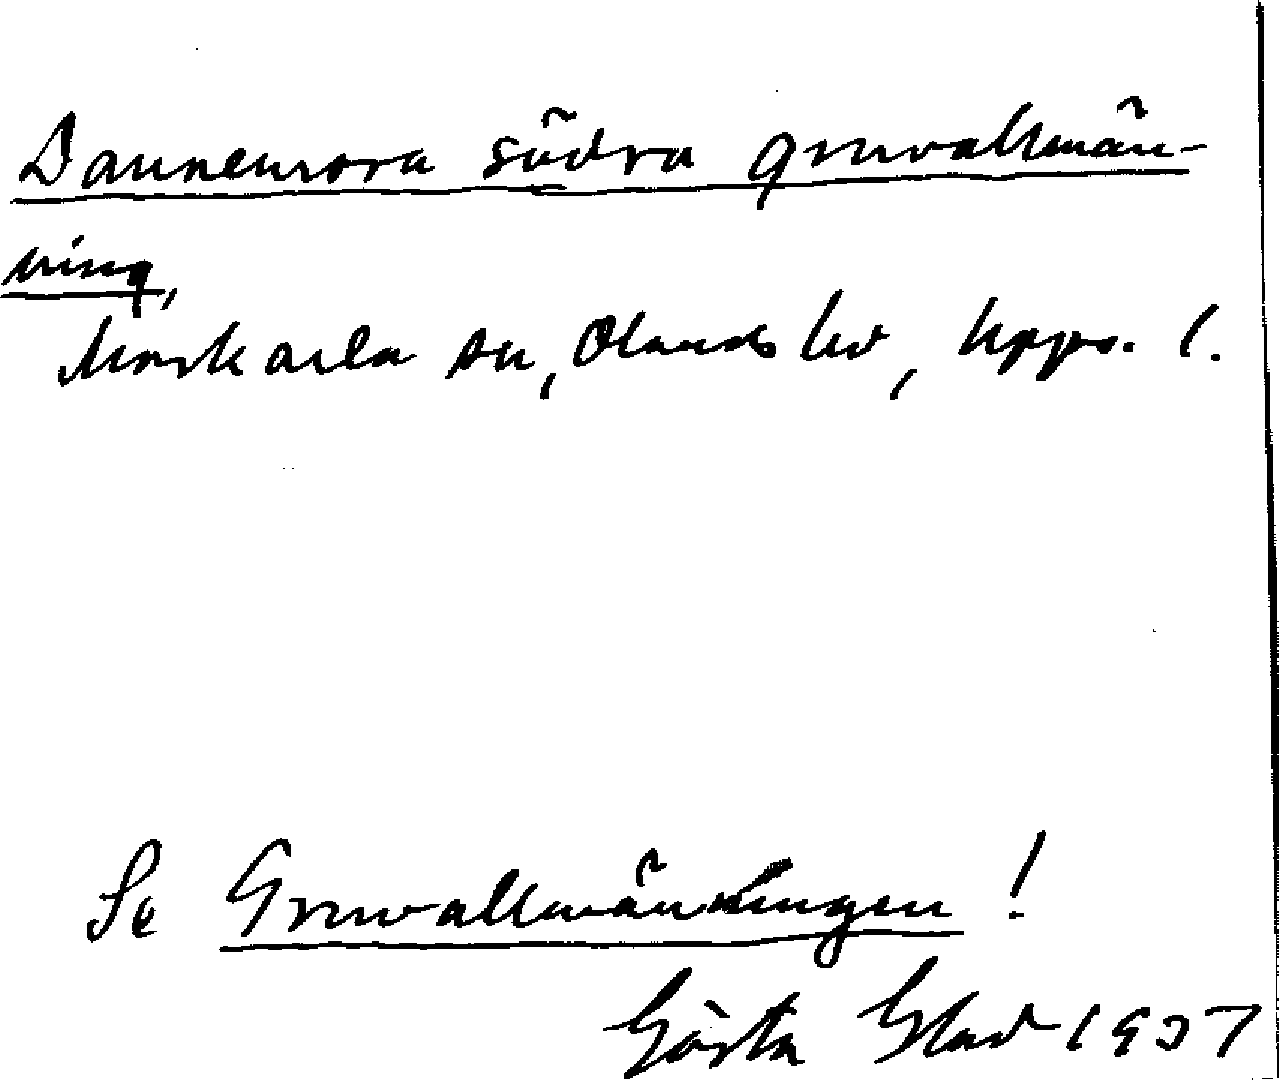 Dannemora södra gruvallmän-
ning,
Morkarla sn, Olands hd, Upps. l.
Se Gruvallmänningen !
Gösta Glad 1937